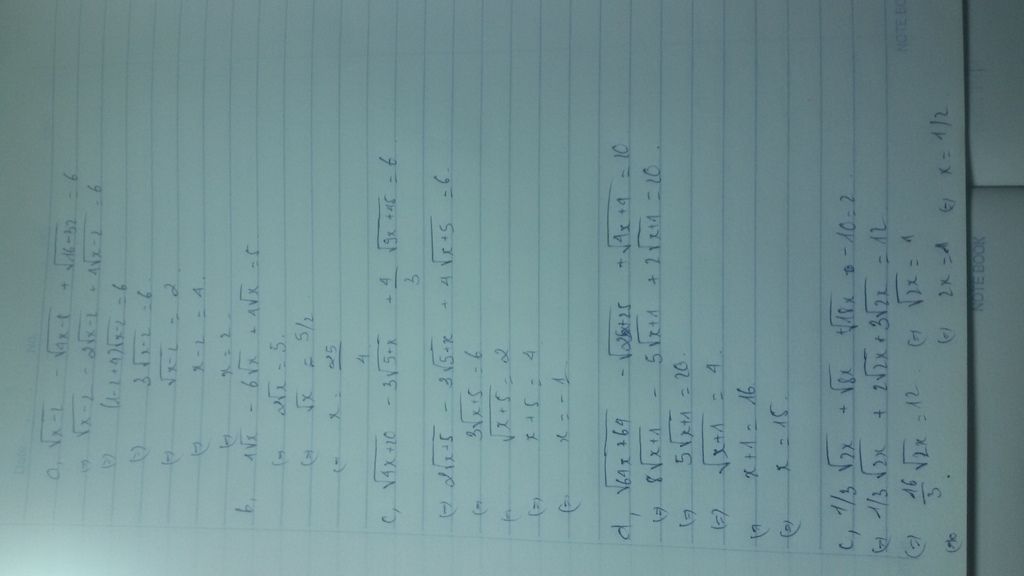 a, √x-2 - √4x-8 + √16-32 = 6
(=) √x-2 - 2√x-2 + 4√x-2 = 6
(=) (1-2+4)√x-2 = 6
(=) 3√x-2 = 6
(=) √x-2 = 2
(=) x-2 = 4
(=) x = 2
b, 4√x - 6√x + 4√x = 5
(=) 2√x = 5
(=) √x = 5/2
(= x = 25/4
c, √4x+20 - 3√5+x + 4/3 √9x+45 = 6
(=) 2√x+5 - 3√5+x + 4√x+5 = 6
(= 3√x+5 = 6
√x+5 = 2
(=) x+5 = 4
(=) x = -1
d, √64x+64 - √25x+25 + √4x+4 = 20
(=) 8√x+1 - 5√x+1 + 2√x+1 = 20
(=) 5√x+1 = 20
(=) √x+1 = 4
(= x+1 = 16
(=) x = 15
c, 1/3 √2x + √8x + √18x - 10 = 2
(=) 1/3 √2x + 2√2x + 3√2x = 12
(=) 16/3 √2x = 12 (=) √2x = 1
(=) 2x = 1 (=) x = 1/2
NOTEBOOK